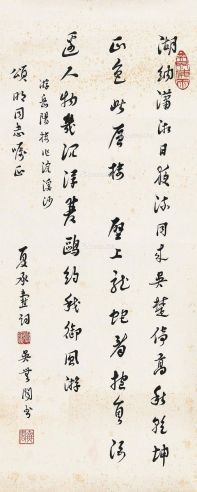 湖納瀟湘日夜流同来吳楚倚高秋乾坤
正色此層樓壁上龍蛇看
人物幾沉浮鷗約我御風游
游岳陽樓作浣溪沙
頌明同志嘱正
夏承燾詞
吳無聞書